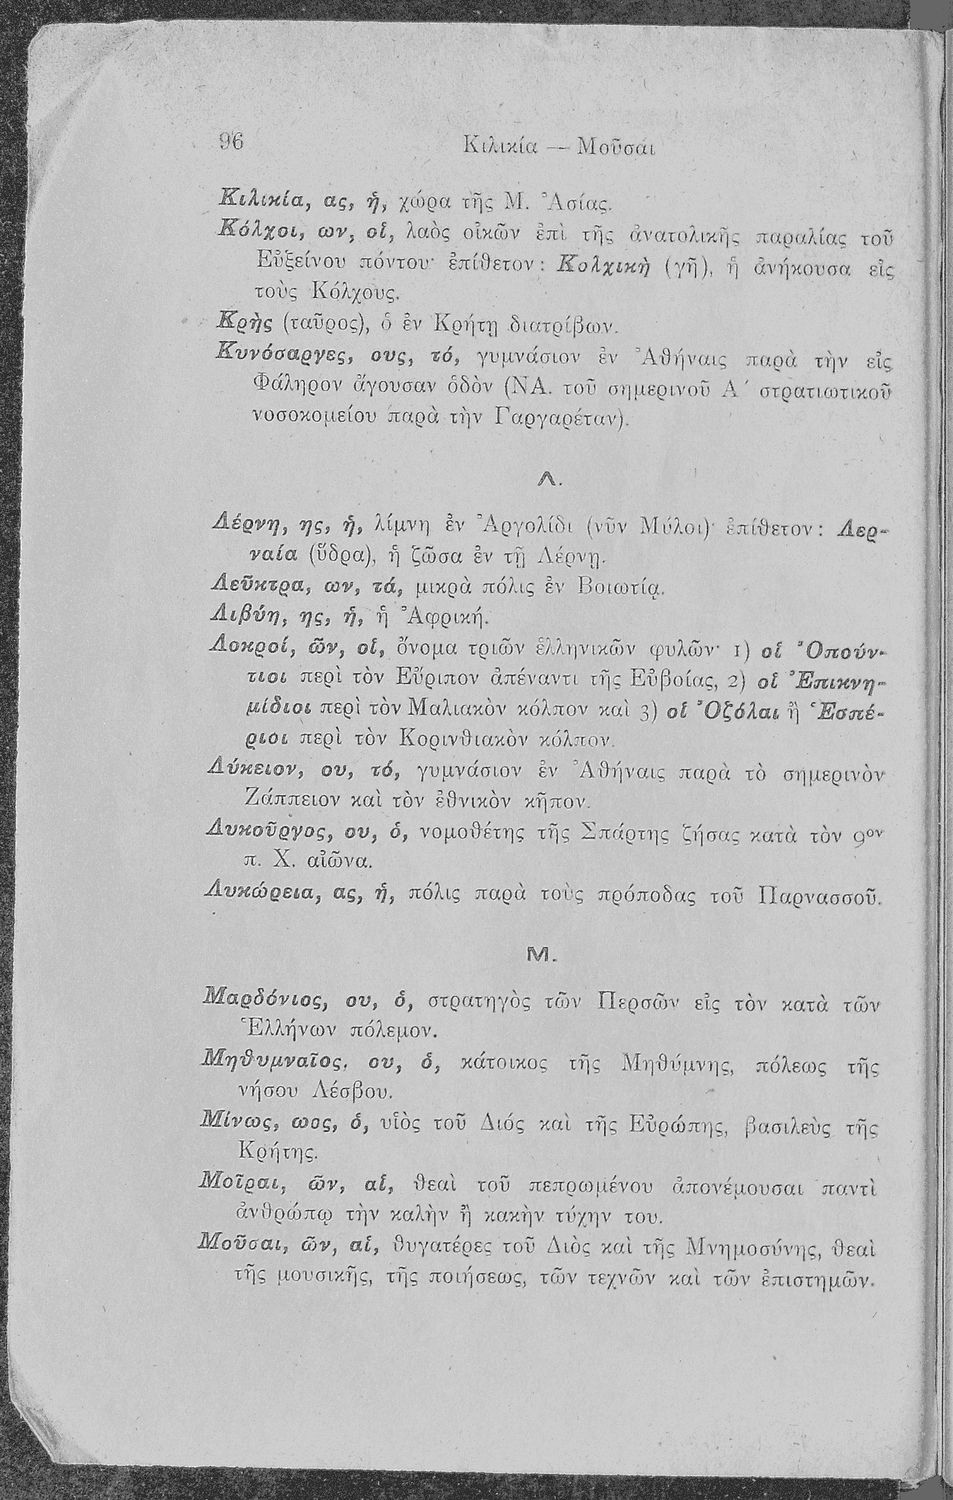 96
Κιλικία — Μοῦσαι
Κιλικία, ας, ἡ, χώρα τῆς Μ. Ἀσίας.
Κόλχοι, ων, οἱ, λαὸς οἰκῶν ἐπὶ τῆς ἀνατολικῆς παραλίας τοῦ
Εὐξείνου πόντου· ἐπίθετον: Κολχικὴ (γῆ), ἡ ἀνήκουσα εἰς
τοὺς Κόλχους.
Κρὴς (ταῦρος), ὁ ἐν Κρήτῃ διατρίβων.
Κυνόσαργες, ους, τό, γυμνάσιον ἐν Ἀθήναις παρὰ τὴν εἰς
Φάληρον ἄγουσαν ὁδὸν (ΝΑ. τοῦ σημερινοῦ Α΄ στρατιωτικοῦ
νοσοκομείου παρὰ τὴν Γαργαρέταν).
Λ.
Λέρνη, ης, ἡ, λίμνη ἐν Ἀργολίδι (νῦν Μύλοι)· ἐπίθετον: Λερ-
ναία (ὕδρα), ἡ ζῶσα ἐν τῇ Λέρνῃ.
Λεῦκτρα, ων, τά, μικρὰ πόλις ἐν Βοιωτίᾳ.
Λιβύη, ης, ἡ, ἡ Ἀφρική.
Λοκροί, ῶν, οἱ, ὄνομα τριῶν ἑλληνικῶν φυλῶν· 1) οἱ Ὀπούν-
τιοι περὶ τὸν Εὔριπον ἀπέναντι τῆς Εὐβοίας, 2) οἱ Ἐπικνη-
μίδιοι περὶ τὸν Μαλιακὸν κόλπον καὶ 3) οἱ Ὀζόλαι ἢ Ἑσπέ-
ριοι περὶ τὸν Κορινθιακὸν κόλπον.
Λύκειον, ου, τό, γυμνάσιον ἐν Ἀθήναις παρὰ τὸ σημερινὸν
Ζάππειον καὶ τὸν ἐθνικὸν κῆπον.
Λυκοῦργος, ου, ὁ, νομοθέτης τῆς Σπάρτης ζήσας κατὰ τὸν 9ον
π. Χ. αἰῶνα.
Λυκώρεια, ας, ἡ, πόλις παρὰ τοὺς πρόποδας τοῦ Παρνασσοῦ.
Μ.
Μαρδόνιος, ου, ὁ, στρατηγὸς τῶν Περσῶν εἰς τὸν κατὰ τῶν
Ἑλλήνων πόλεμον.
Μηθυμναῖος. ου, ὁ, κάτοικος τῆς Μηθύμνης, πόλεως τῆς
νήσου Λέσβου.
Μίνως, ωος, ὁ, υἱὸς τοῦ Διός καὶ τῆς Εὐρώπης, βασιλεὺς τῆς
Κρήτης.
Μοῖραι, ῶν, αἱ, θεαὶ τοῦ πεπρωμένου ἀπονέμουσαι παντὶ
ἀνθρώπῳ τὴν καλὴν ἢ κακὴν τύχην του.
Μοῦσαι, ῶν, αἱ, θυγατέρες τοῦ Διὸς καὶ τῆς Μνημοσύνης, θεαὶ
τῆς μουσικῆς, τῆς ποιήσεως, τῶν τεχνῶν καὶ τῶν ἐπιστημῶν.